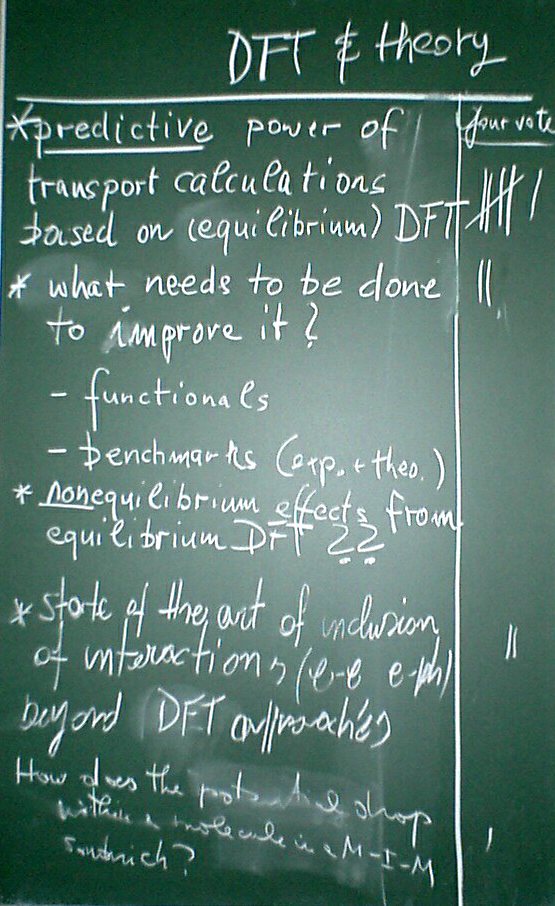 DFT & theory
* predictive power of
Your vote
transport calculations
based on (equilibrium) DFT
* what needs to be done
to improve it?
- functionals
- benchmarks (exp. + theo.)
* nonequilibrium effects from
equilibrium DFT ??
* state of the art of inclusion
of interactions (e-e e-ph)
beyond DFT approaches
How does the potential drop
within a molecule in a M-I-M
sandwich?